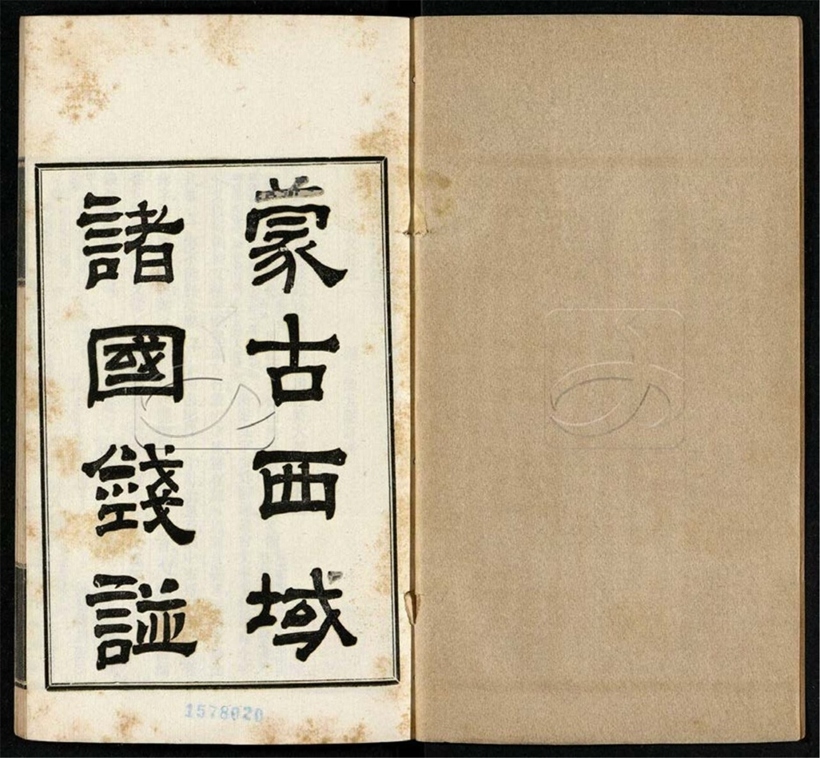 蒙古西域
諸國錢譜
1578020